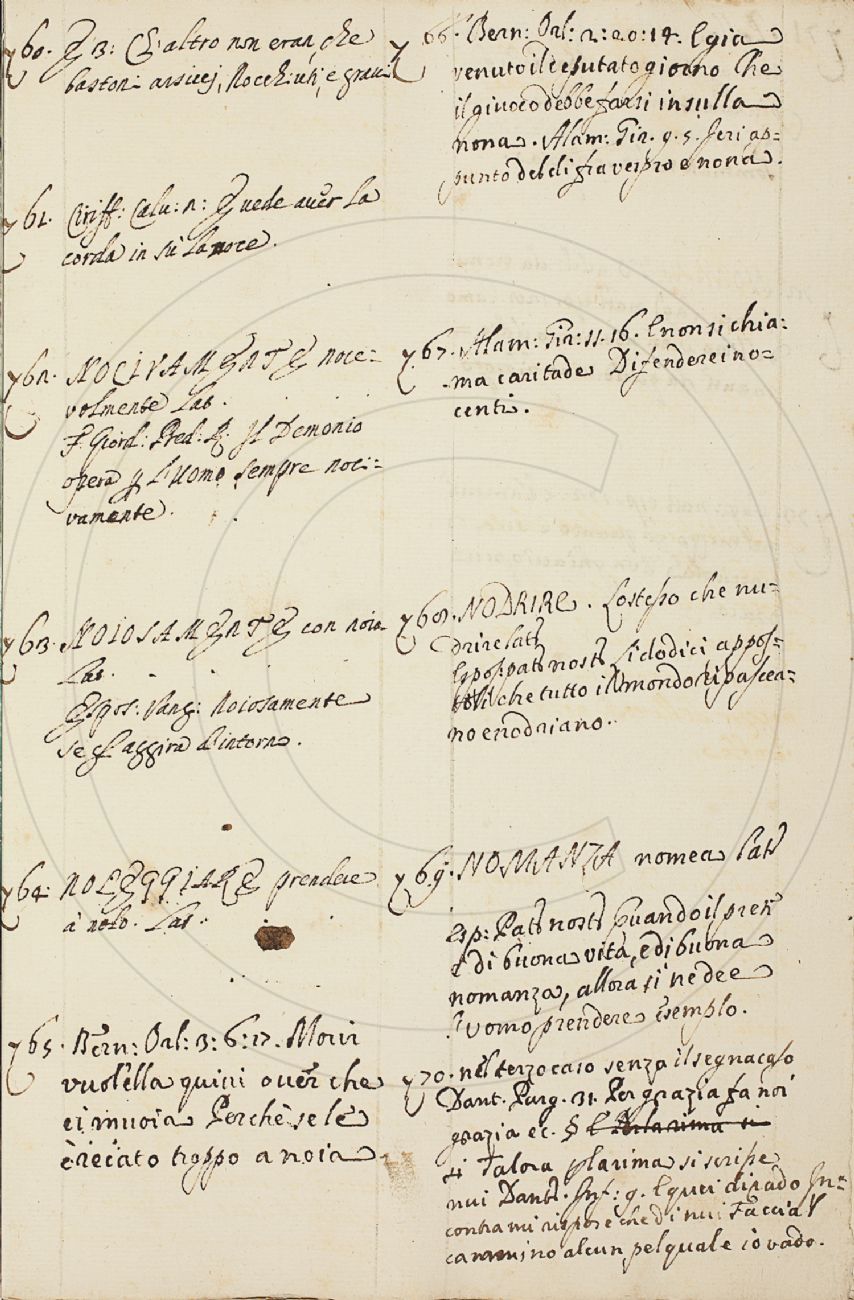 760. E 3: Ch'altro non eran, che
bastoni arsicci, Nocchiuti, e gravi
761. Ciriff: Calv: 2: Quede aver la
corda in sù la noce.
762. NOCIVAMENTE noce=
volmente Lat.
F. Giord: Pred: R. Il Demonio
opera p l'uomo sempre noci=
vamente.
763. NOIOSAMENTE con noia
Lat.
Espos: Vang: Noiosamente
se gl'aggira d'intorno.
764: NOLEGGIARE prendere
à nolo. Lat.
765. Bern: Orl: 3: 6: 17. Morir
vuol'ella quivi over che
ei muoia Perchè se lè
èrecato troppo a noia
766. Bern: Orl: 2: 20: 14. E già
venuto il deputato giorno Che
il giuoco debbe farsi in sulla
nona. Alam: Gir. 9. 5. Ieri ap=
punto del dì fra vespro e nona.
767. Alam: Gir: 11. 16. E non si chia=
ma caritade Difendere i no=
centi.
768. NODRIRE. Lo stesso che nu=
drire lat
Espos: pat nost Si dodici appos=
toli che tutto il mondo ripascea=
no e nodriano.
769. NOMANZA nomea Lat
Esp: Pat nost Quando il pren
è di buona vita, e di buona
nomanza, allora si ne dee
l'uomo prendere esemplo.
770. nel terzo caso senza il segnacaso
Dant. Purg. 31. Per grazia fa noi
grazia ec. §
Talora p la rima si scrisse
nui Dant. Inf: 9. E quei di rado In=
contra mi rispose che di nui Faccia l
cammino alcun, pel quale io vado.